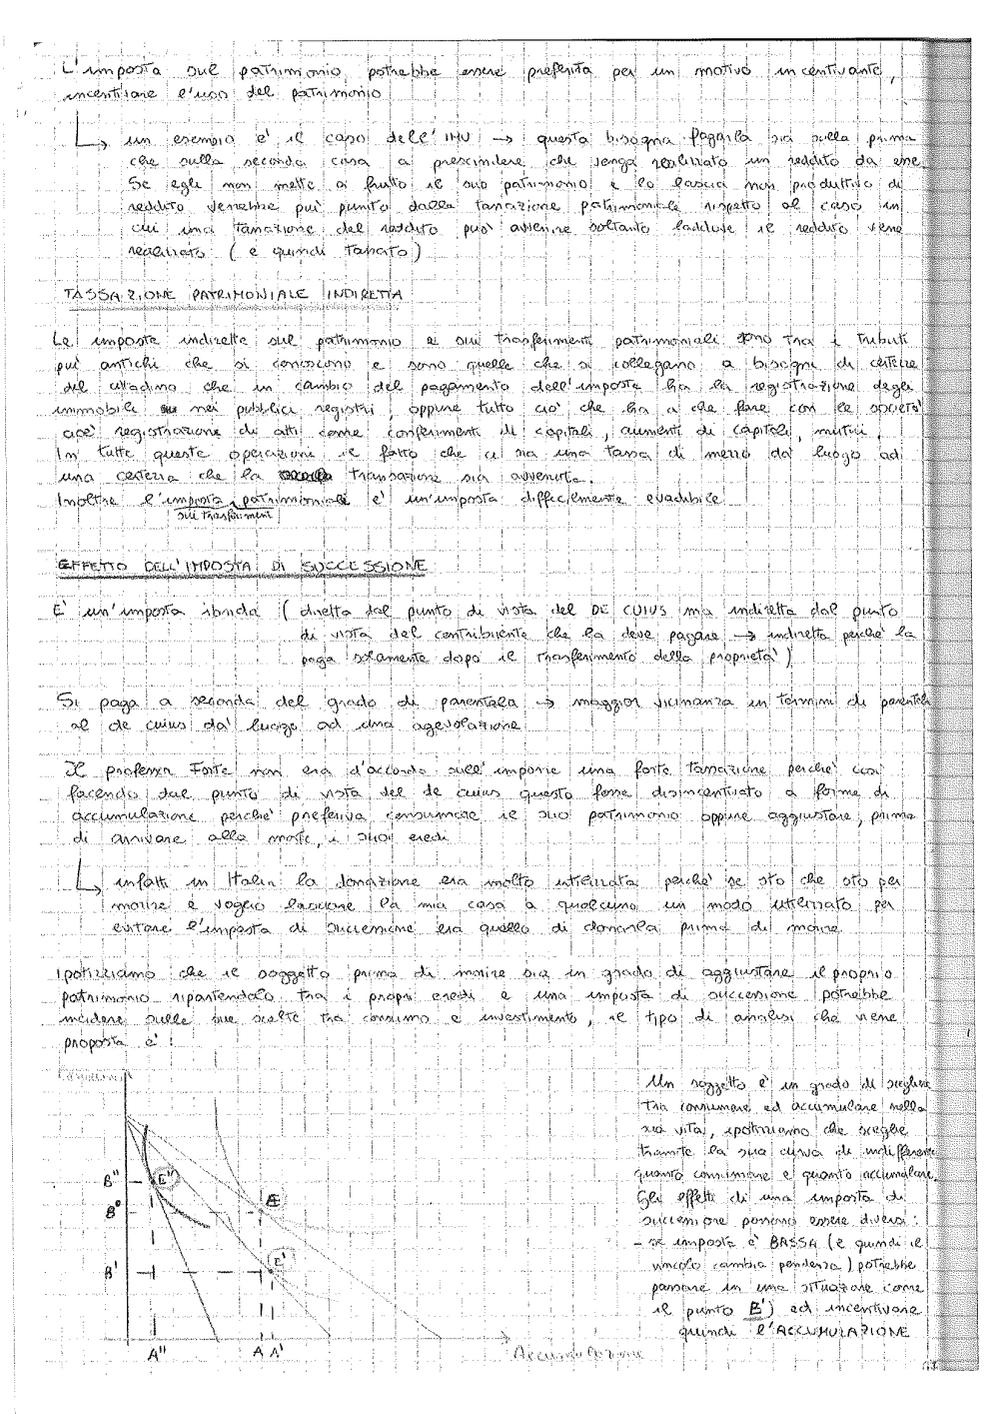 L'imposta sul patrimonio potrebbe essere preferita per un motivo incentivante,
incentivare l'uso del patrimonio
un esempio è il caso dell'IMU → questa bisogna pagarla sia sulla prima
che sulla seconda casa a prescindere che venga realizzato un reddito da esse.
Se egli non mette a frutto il suo patrimonio e lo lascia non produttivo di
reddito verrebbe più punito dalla tassazione patrimoniale rispetto al caso in
cui una tassazione del reddito può avvenire soltanto laddove il reddito viene
realizzato (e quindi tassato)
TASSAZIONE PATRIMONIALE INDIRETTA
Le imposte indirette sul patrimonio e sui trasferimenti patrimoniali sono tra i tributi
più antichi che si conoscono e sono quelle che si collegano a bisogni di certezze
del cittadino che in cambio del pagamento dell'imposta ha la registrazione degli
immobili nei pubblici registri, oppure tutto ciò che ha a che fare con le società
cioè registrazione di atti come conferimenti di capitali, aumenti di capitali, mutui.
In tutte queste operazioni il fatto che ci sia una tassa di mezzo dà luogo ad
una certezza che la transazione sia avvenuta.
Inoltre l'imposta patrimoniale è un'imposta difficilmente evadibile
sui trasferimenti
EFFETTO DELL'IMPOSTA DI SUCCESSIONE
E' un'imposta ibrida (diretta dal punto di vista del DE CUIUS ma indiretta dal punto
di vista del contribuente che la deve pagare → indiretta perchè la
paga solamente dopo il trasferimento della proprietà)
Si paga a seconda del grado di parentela → maggior vicinanza in termini di parentela
al de cuius dà luogo ad una agevolazione
Il professor Forte non era d'accordo sull'imporre una forte tassazione perchè così
facendo dal punto di vista del de cuius questo fosse disincentivato a forme di
accumulazione perchè preferiva consumare il suo patrimonio oppure aggiustare, prima
di arrivare alla morte, i suoi eredi
infatti in Italia la donazione era molto utilizzata perchè se sto che sto per
morire e voglio lasciare la mia casa a qualcuno un modo utilizzato per
evitare l'imposta di successione era quello di donarla prima di morire
Ipotizziamo che il soggetto prima di morire sia in grado di aggiustare il proprio
patrimonio ripartendolo tra i propri eredi e una imposta di successione potrebbe
incidere sulle sue scelte tra consumo e investimento, il tipo di analisi che viene
proposta è:
Un soggetto è in grado di scegliere
tra consumare ed accumulare nella
sua vita, ipotizziamo che sceglie
tramite la sua curva di indifferenza
quanto consumare e quanto accumulare.
Gli effetti di una imposta di
successione possono essere diversi:
- se imposta è BASSA (e quindi il
vincolo cambia pendenza) potrebbe
passare in una situazione come
il punto B') ed incentivare
quindi l'ACCUMULAZIONE
B''
E''
B°
E
E'
B'
A''
A A'
Accumulazione